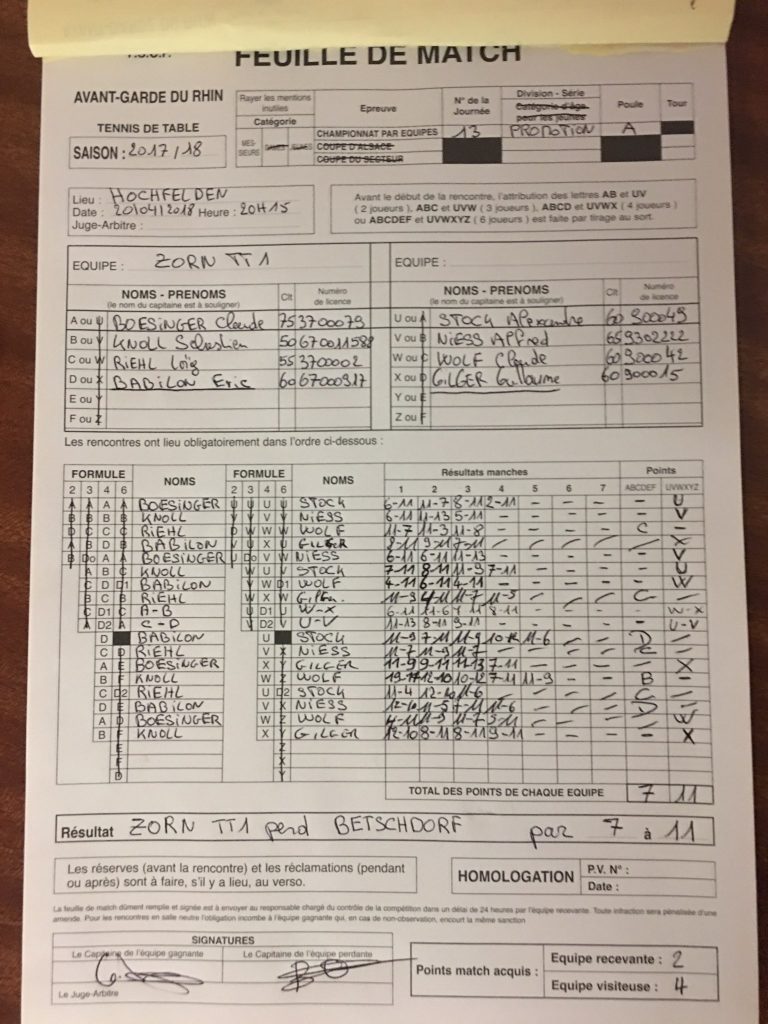 FEUILLE DE MATCH
AVANT-GARDE DU RHIN
TENNIS DE TABLE
SAISON : 2017/18
Rayer les mentions inutiles
Catégorie
MES-SIEURS DAMES
Epreuve
N° de la Journée
Division - Série
Catégorie d'âge pour les jeunes
Poule
Tour
CHAMPIONNAT PAR EQUIPES 13 PROMOTION A
COUPE D'ALSACE
COUPE DU SECTEUR
Lieu : HOCHFELDEN
Date : 20/04/2018 Heure : 20H15
Juge-Arbitre :
Avant le début de la rencontre, l'attribution des lettres AB et UV
( 2 joueurs ), ABC et UVW ( 3 joueurs ), ABCD et UVWX ( 4 joueurs )
ou ABCDEF et UVWXYZ ( 6 joueurs ) est faite par tirage au sort.
EQUIPE : ZORN TT1
EQUIPE :
NOMS - PRENOMS Clt Numéro de licence
(le nom du capitaine est à souligner)
NOMS - PRENOMS Clt Numéro de licence
(le nom du capitaine est à souligner)
A ou U BOESINGER Claude 75 3700079
U ou A STOCK Alexandre 60 900049
B ou V KNOLL Sebastien 50
V ou B NiESS Alfred 65 9302222
C ou W RiEHL Loïg 55 3700002
W ou C WOLF Claude 60 900042
D ou X BABILON Eric 60 67000317
X ou D GILGER Guillaume 60 900015
E ou Y
Y ou E
F ou Z
Z ou F
Les rencontres ont lieu obligatoirement dans l'ordre ci-dessous :
FORMULE NOMS FORMULE NOMS Résultats manches Points
2 3 4 6 2 3 4 6 1 2 3 4 5 6 7 ABCDEF UVWXYZ
A BOESINGER U STOCK 6-11 11-7 8-11 2-11 - - - - U
B KNOLL V NiESS 6-11 11-13 5-11 - - - - - V
C RiEHL W WOLF 11-7 11-3 11-8 - - - - C -
D BABILON X GILGER 8-11 9-11 7-11 X
A BOESINGER V NiESS 6-11 6-11 11-13 - - - - - V
B KNOLL U STOCK 7-11 8-11 11-9 7-11 - - - - U
D BABILON W WOLF 4-11 6-11 4-11 - - - - - W
C RiEHL X 11-9 4-11 11-7 11-5 - - - C -
D1 A-B D1 W-X 6-11 11-6 8-11 - - - - W-X
D2 C-D D2 U-V 11-13 8-11 9-11 - - - - - U-V
D BABILON U STOCK 11-9 7-11 11-9 11-6 - - D -
C RIEHL V NiESS 11-7 11-9 11-7 - - - -
A BOESINGER X GILGER 11-9 9-11 11-13 7-11 - - - - X
B KNOLL W WOLF 12-10 10-12 7-11 11-9 - - B -
C RIEHL U STOCK 11-4 12-10 11-6 - - - - C -
D BABILON V NIESS 12-10 11-5 11-6 - - - D -
A BOESINGER W WOLF 4-11 11-9 - - - - W
B KNOLL X GILGER 12-10 8-11 8-11 9-11 - - - - X
TOTAL DES POINTS DE CHAQUE EQUIPE 7 11
Résultat ZORN TT1 perd BETSCHDORF par 7 à 11
Les réserves (avant la rencontre) et les réclamations (pendant
ou après) sont à faire, s'il y a lieu, au verso.
HOMOLOGATION
P.V. N° :
Date :
La feuille de match dûment remplie et signée est à envoyer au responsable chargé du contrôle de la compétition dans un délai de 24 heures par l'équipe recevante. Toute infraction sera pénalisée d'une
amende. Pour les rencontres en salle neutre l'obligation incombe à l'équipe gagnante qui, en cas de non-observation, encourt la même sanction
SIGNATURES
Le Capitaine de l'équipe gagnante
Le Capitaine de l'équipe perdante
Le Juge-Arbitre
Points match acquis :
Equipe recevante : 2
Equipe visiteuse : 4